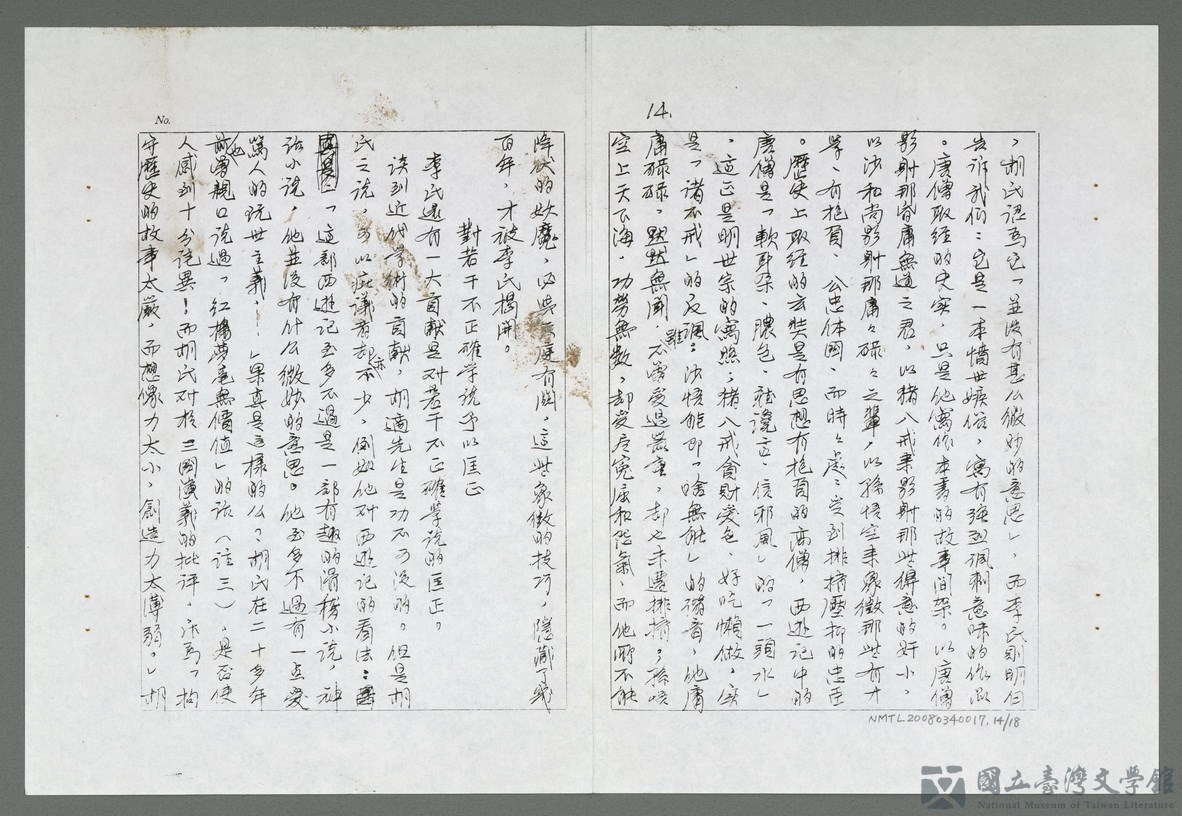 14.
，胡氏認為它「並沒有甚么微妙的意思」，而李氏則明白
告訴我们：它是一本憤世嫉俗，寓有強烈諷刺意味的作品
。唐僧取經的史实，只是他寓作本書的故事间架。以唐僧
影射那昏庸無道之君，以猪八戒来影射那些得意的奸小、
以沙和尚影射那庸々碌々之輩，以孫悟空来象徵那些有才
學、有抱負、公忠体國、而時々處々受到排擠壓抑的忠臣
。歷史上取经的玄奘是有思想有抱負的高僧，西遊记中的
唐僧是「軟耳朵、膿包、聽讒言、信邪風」的「一頭水」
，這正是明世宗的寫照；猪八戒貪財愛色、好吃懶做，
是「諸不戒」的反諷；沙悟能即「啥無能」的諧音，他庸
庸碌碌，默默無聞，雖不曾受過器重，却也未遭排擠；孫悟
空上天下海，功勞無數，却受尽冤屈和怨氣，而他所不能
No.
降伏的妖魔，必與天庭有関，這些象徵的技巧，隱藏了幾
百年，才被李氏揭開。
對若干不正確学説予以匡正
李氏還有一大貢献是对若干不正確学説的匡正。
谈到近代学術的貢献，胡適先生是功不可沒的。但是胡
氏之说，可以疵議者却亦不少，例如他对西遊记的看法：
「這部西遊記至多不過是一部有趣的滑稽小说，神
话小说，他並沒有什么微妙的意思。他至多不過有一点爱
駡人的玩世主義，…」果真是這樣的么？胡氏在二十多年
前他曾親口说過「红楼夢毫無價值」的话（註三），是否使
人感到十分詫異！而胡氏对於三國演義的批评，亦為「拘
守歷史的故事太嚴，而想像力太小，創造力太薄弱。」胡
NMTL20080340017.14/18
國立臺灣文學館
National Museum of Taiwan Literature